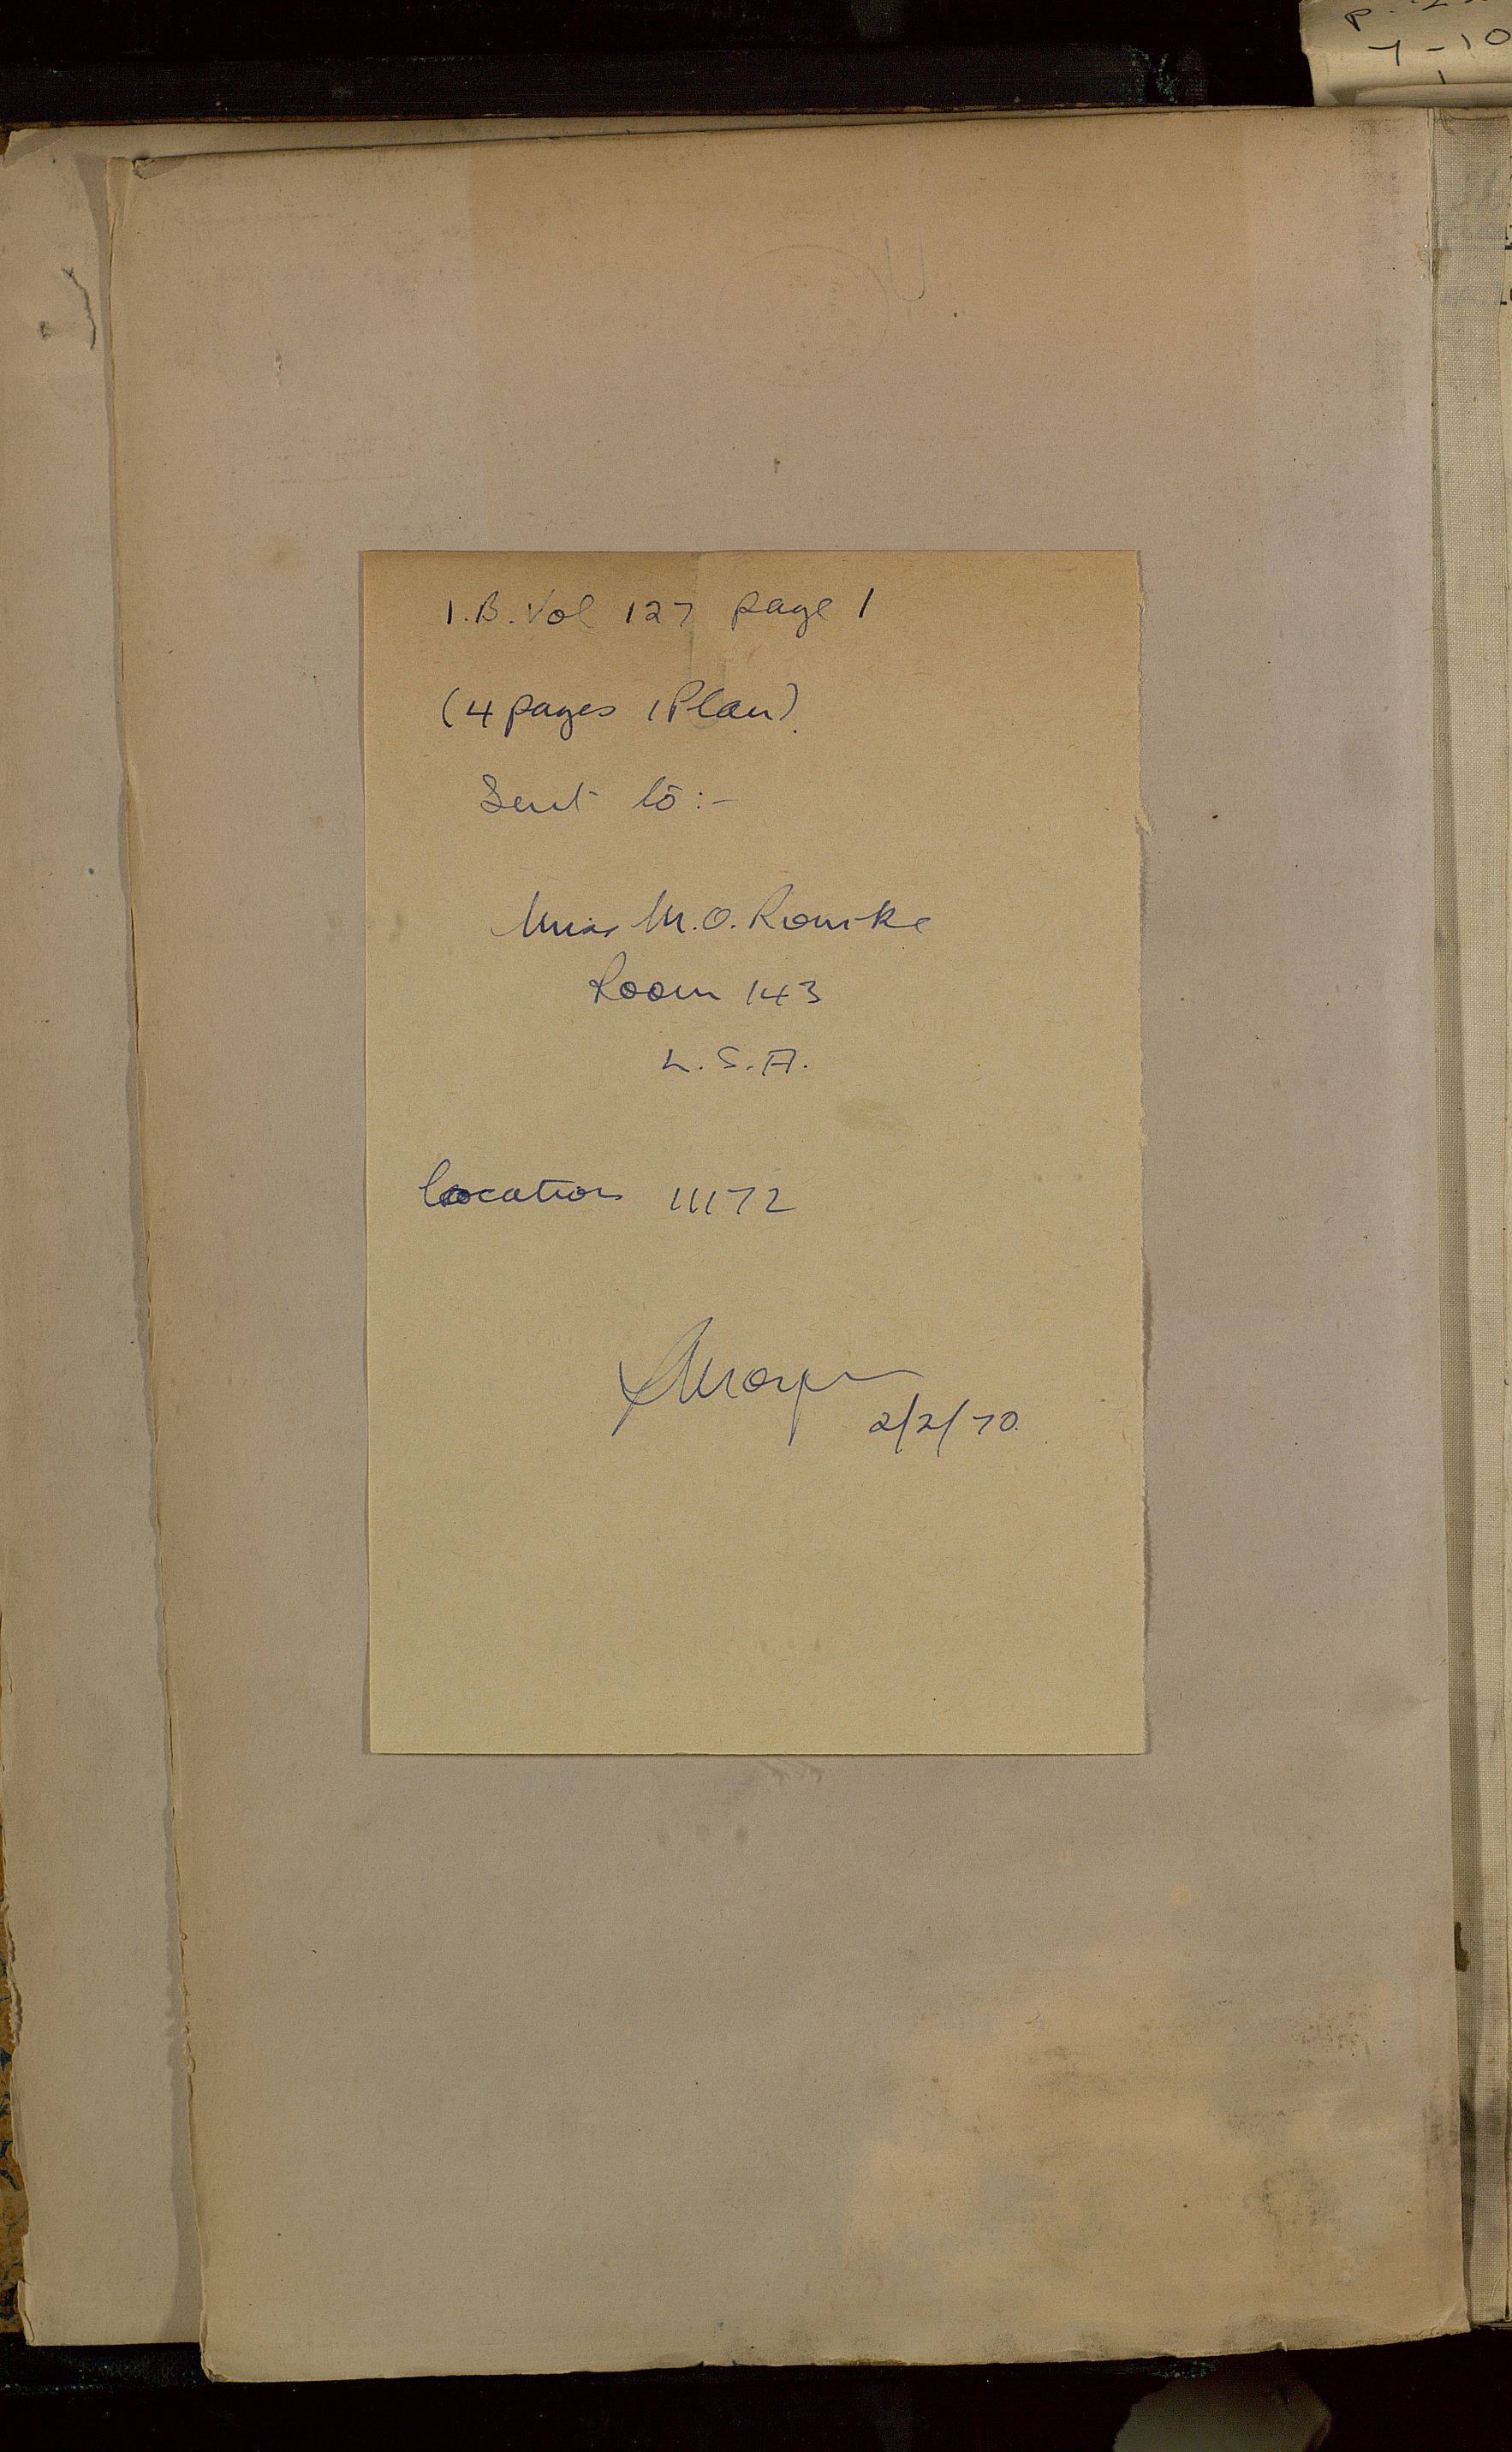 I.B. Vol 127 page 1
(4 pages 1 Plan).
Sent to:-
Miss M. O. Rourke
Room 143
L.S.A.
Location 11172
2/2/70.